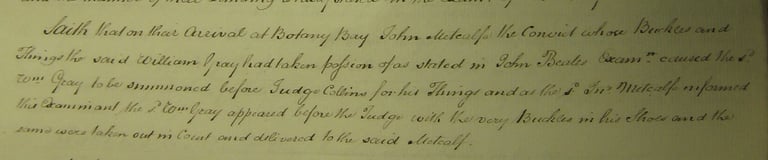 Saith that on their Arrival at Botany Bay John Metcalfe the Convict whose Buckles and
Things the said William Gray had taken possion of as stated in John Beales Examn. caused the sd.
Wm. Gray to be summoned before Judge Collins for his Things and as the sd. Jno. Metcalfe informed
this Examinant, the sd. Wm. Gray appeared before the Judge with the very Buckles in his Shoes and the
same were taken out in Court and delivered to the said Metcalf.